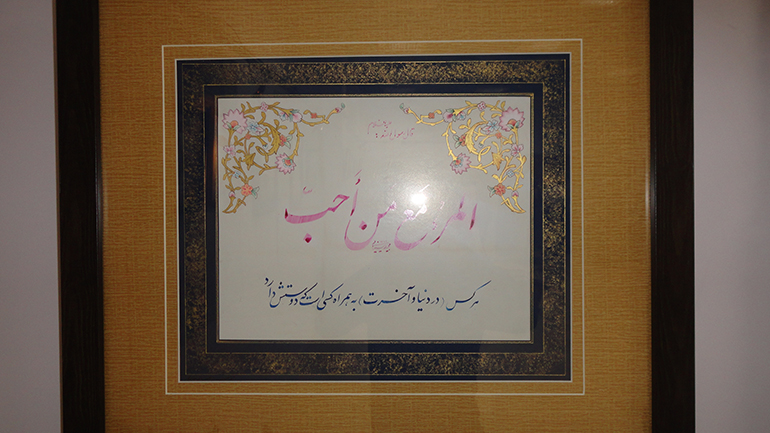 قال رسول الله:
المرء مع من أحبّ
هر کس (در دنیا و آخرت) به همراه کسی است که دوستش دارد